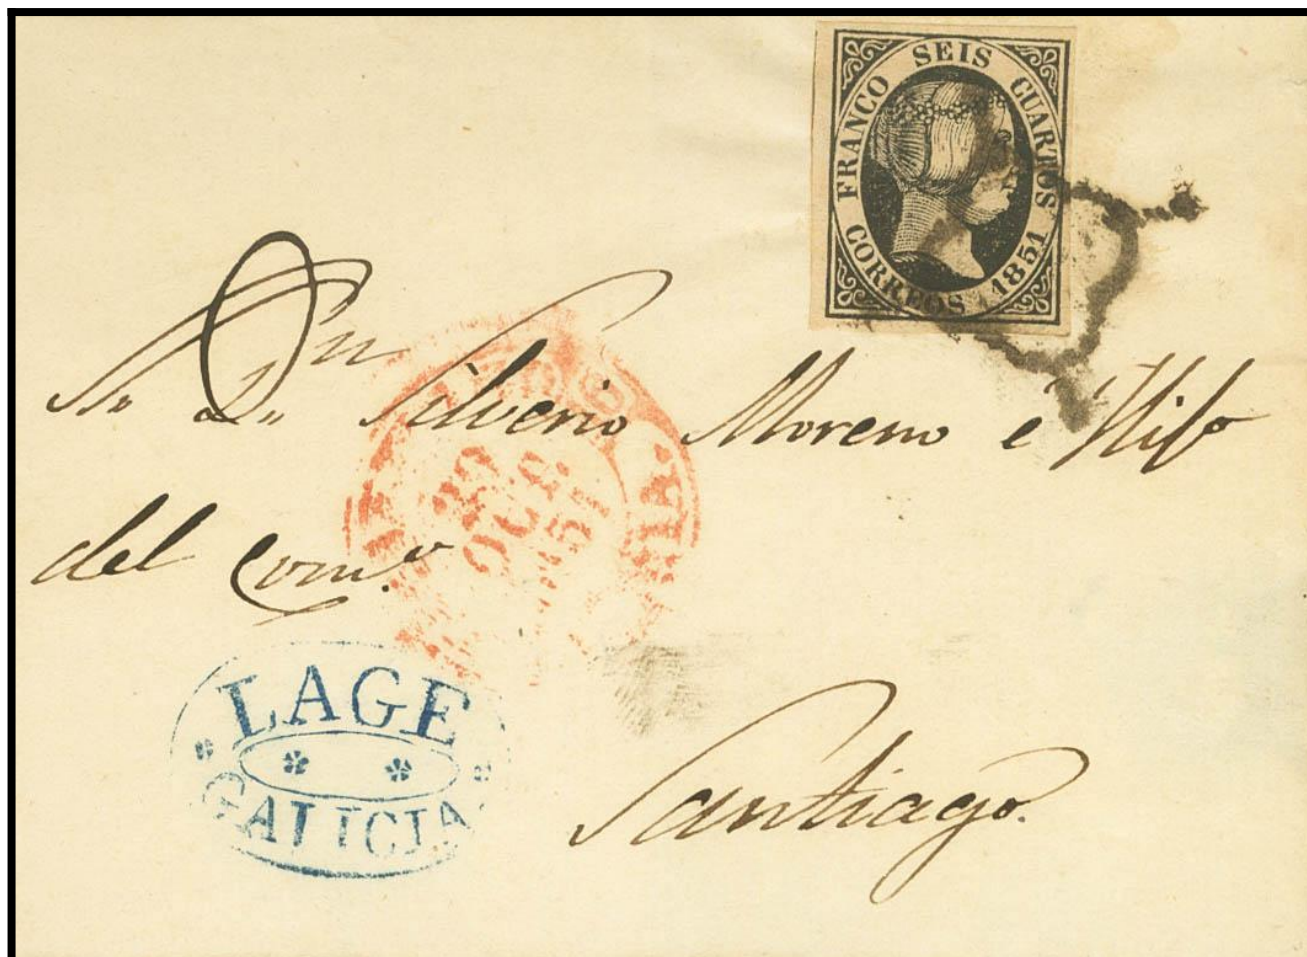 FRANCO SEIS CUARTOS
CORREOS 1851
Sr Dn Silverio Moreno é Hijo
del Comº
29
OCT
1851
LAGE
GALICIA
Santiago.